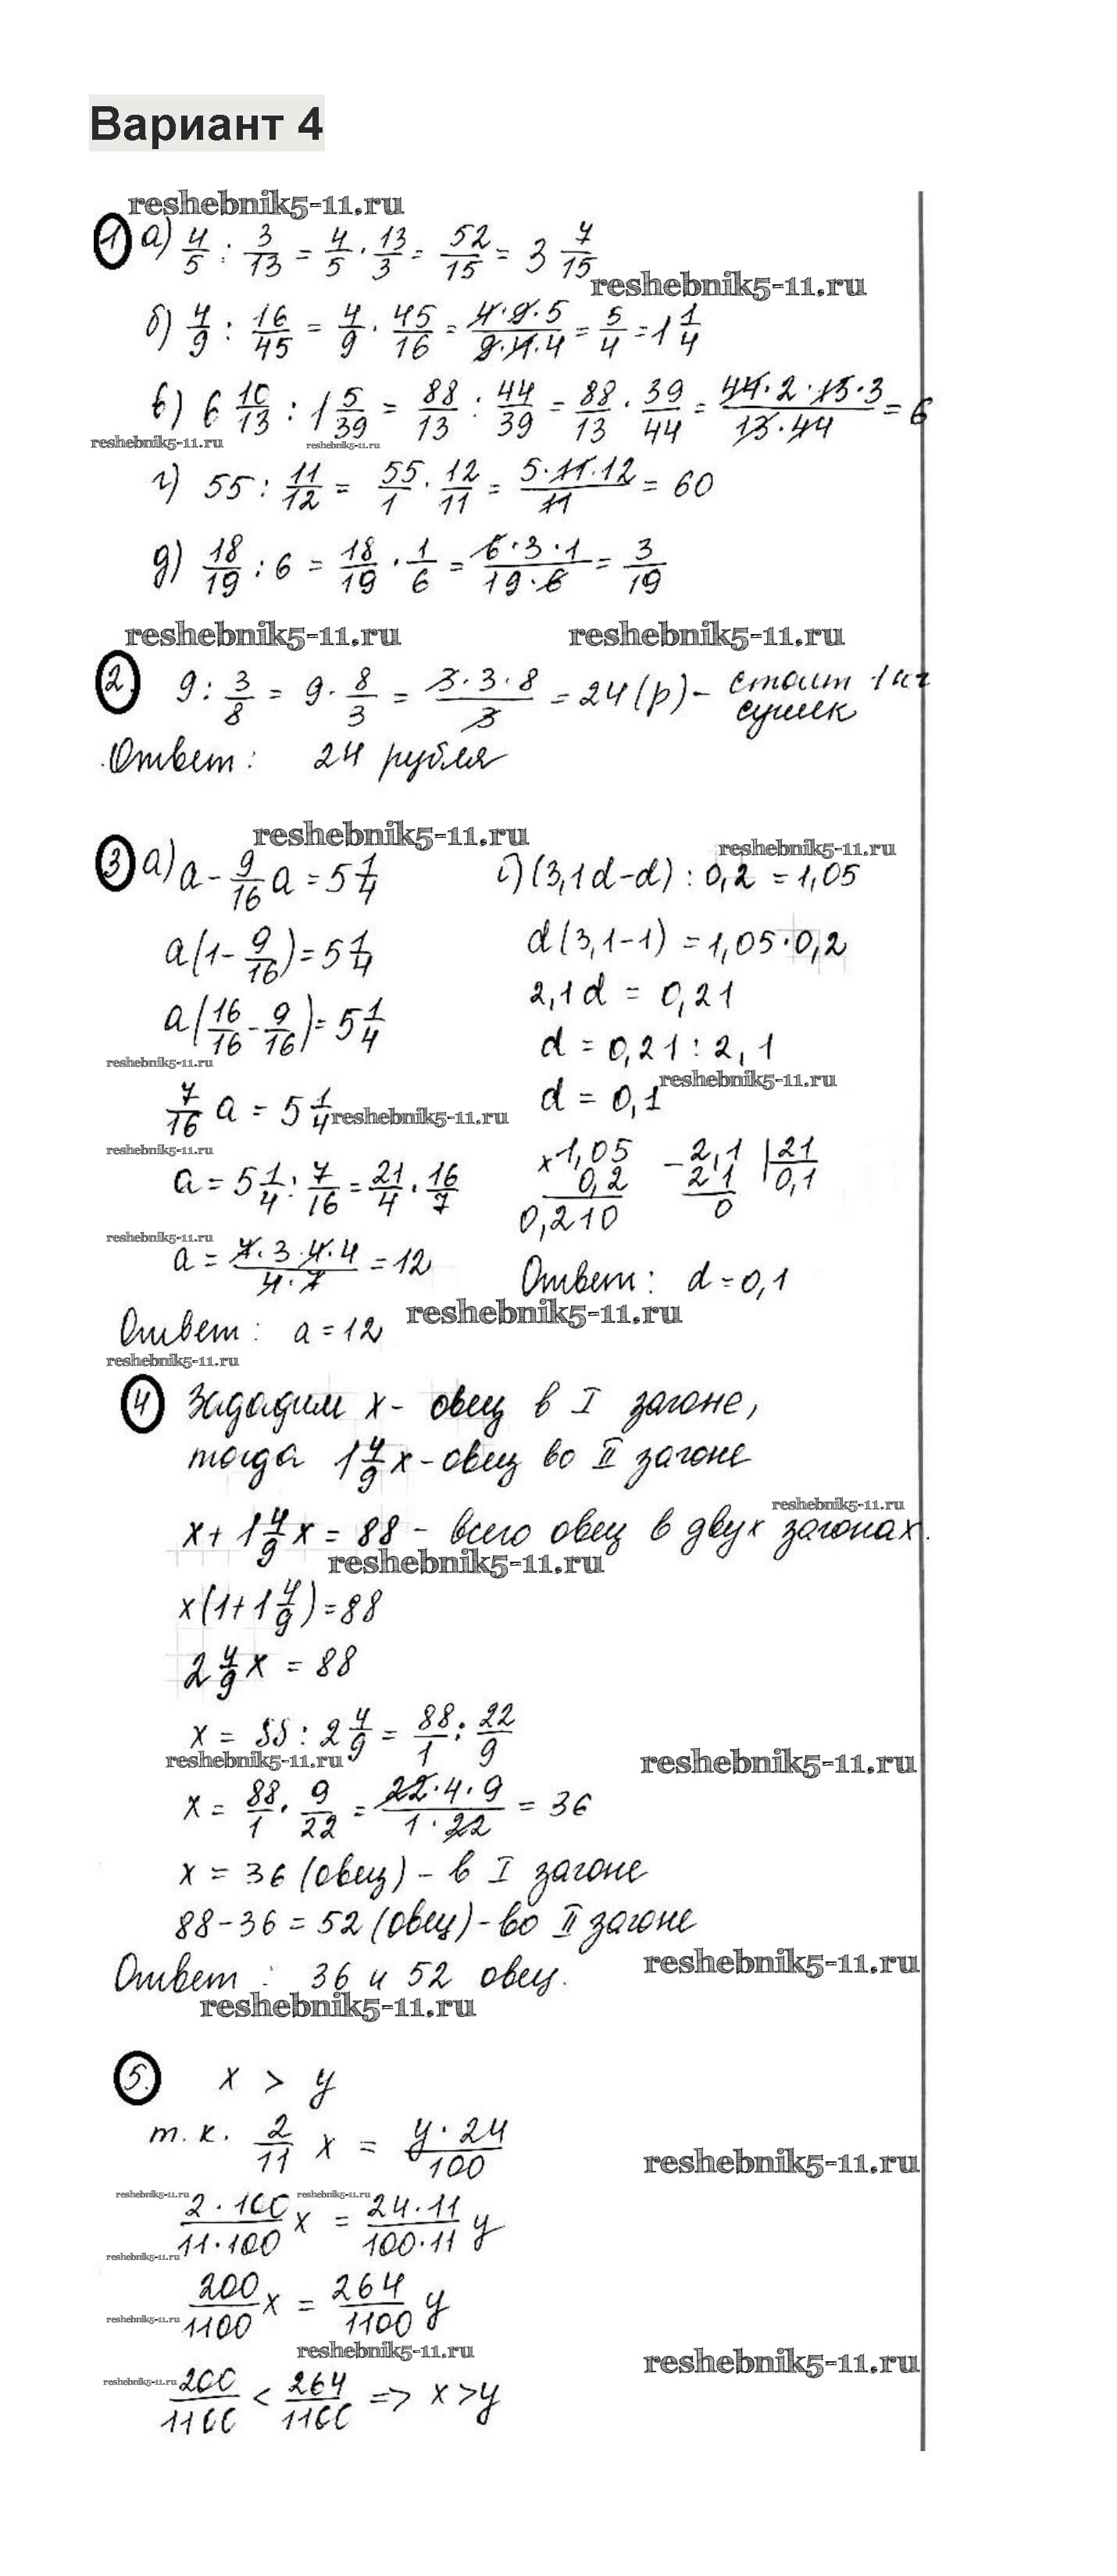 Вариант 4
reshebnik5-11.ru
1 а) 4/5 : 3/13 = 4/5 · 13/3 = 52/15 = 3 7/15
reshebnik5-11.ru
б) 4/9 : 16/45 = 4/9 · 45/16 = 4·9·5/9·4·4 = 5/4 = 1 1/4
в) 6 10/13 : 1 5/39 = 88/13 : 44/39 = 88/13 · 39/44 = 44·2·13·3/13·44 = 6
reshebnik5-11.ru reshebnik5-11.ru
г) 55 : 11/12 = 55/1 · 12/11 = 5·11·12/11 = 60
д) 18/19 : 6 = 18/19 · 1/6 = 6·3·1/19·6 = 3/19
reshebnik5-11.ru reshebnik5-11.ru
2. 9 : 3/8 = 9 · 8/3 = 3·3·8/3 = 24 (р) - стоит 1 кг
сушек
Ответ: 24 рубля
reshebnik5-11.ru reshebnik5-11.ru
3 а) a - 9/16 a = 5 1/4
a(1 - 9/16) = 5 1/4
a(16/16 - 9/16) = 5 1/4
reshebnik5-11.ru
7/16 a = 5 1/4
reshebnik5-11.ru
reshebnik5-11.ru
a = 5 1/4 : 7/16 = 21/4 · 16/7
reshebnik5-11.ru
a = 7·3·4·4/4·7 = 12
Ответ: a = 12
(3,1d-d) : 0,2 = 1,05
d(3,1-1) = 1,05·0,2
2,1d = 0,21
d = 0,21 : 2,1
reshebnik5-11.ru
d = 0,1
×1,05 -2,1 |21
0,2 21 0,1
0,210 0
Ответ: d = 0,1
reshebnik5-11.ru
reshebnik5-11.ru
4 Зададим x - овец в I загоне,
тогда 1 4/9 x - овец во II загоне
reshebnik5-11.ru
x + 1 4/9 x = 88 - всего овец в двух загонах.
reshebnik5-11.ru
x(1 + 1 4/9) = 88
2 4/9 x = 88
x = 88 : 2 4/9 = 88/1 : 22/9
reshebnik5-11.ru reshebnik5-11.ru
x = 88/1 · 9/22 = 22·4·9/1·22 = 36
x = 36 (овец) - в I загоне
88 - 36 = 52 (овец) - во II загоне
reshebnik5-11.ru
Ответ: 36 и 52 овец.
reshebnik5-11.ru
5. x > y
т.к. 2/11 x = y·24/100
reshebnik5-11.ru
reshebnik5-11.ru reshebnik5-11.ru
2·100/11·100 x = 24·11/100·11 y
reshebnik5-11.ru
200/1100 x = 264/1100 y
reshebnik5-11.ru
reshebnik5-11.ru reshebnik5-11.ru
reshebnik5-11.ru
200/1100 < 264/1100 => x > y